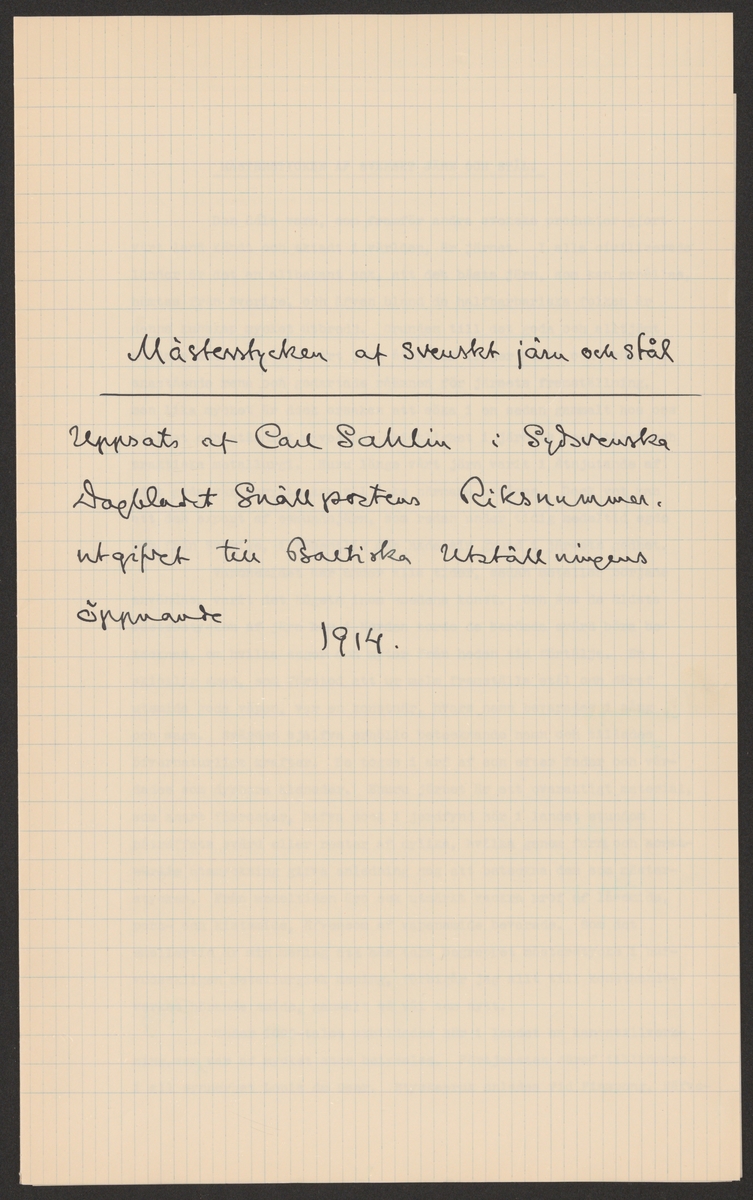 Mästerstycken af svenskt järn och stål
Uppsats af Carl Sahlin i Sydsvenska
Dagbladet Snällpostens Riksnummer.
utgifvet till Baltiska Utställningens
öppnande
1914.